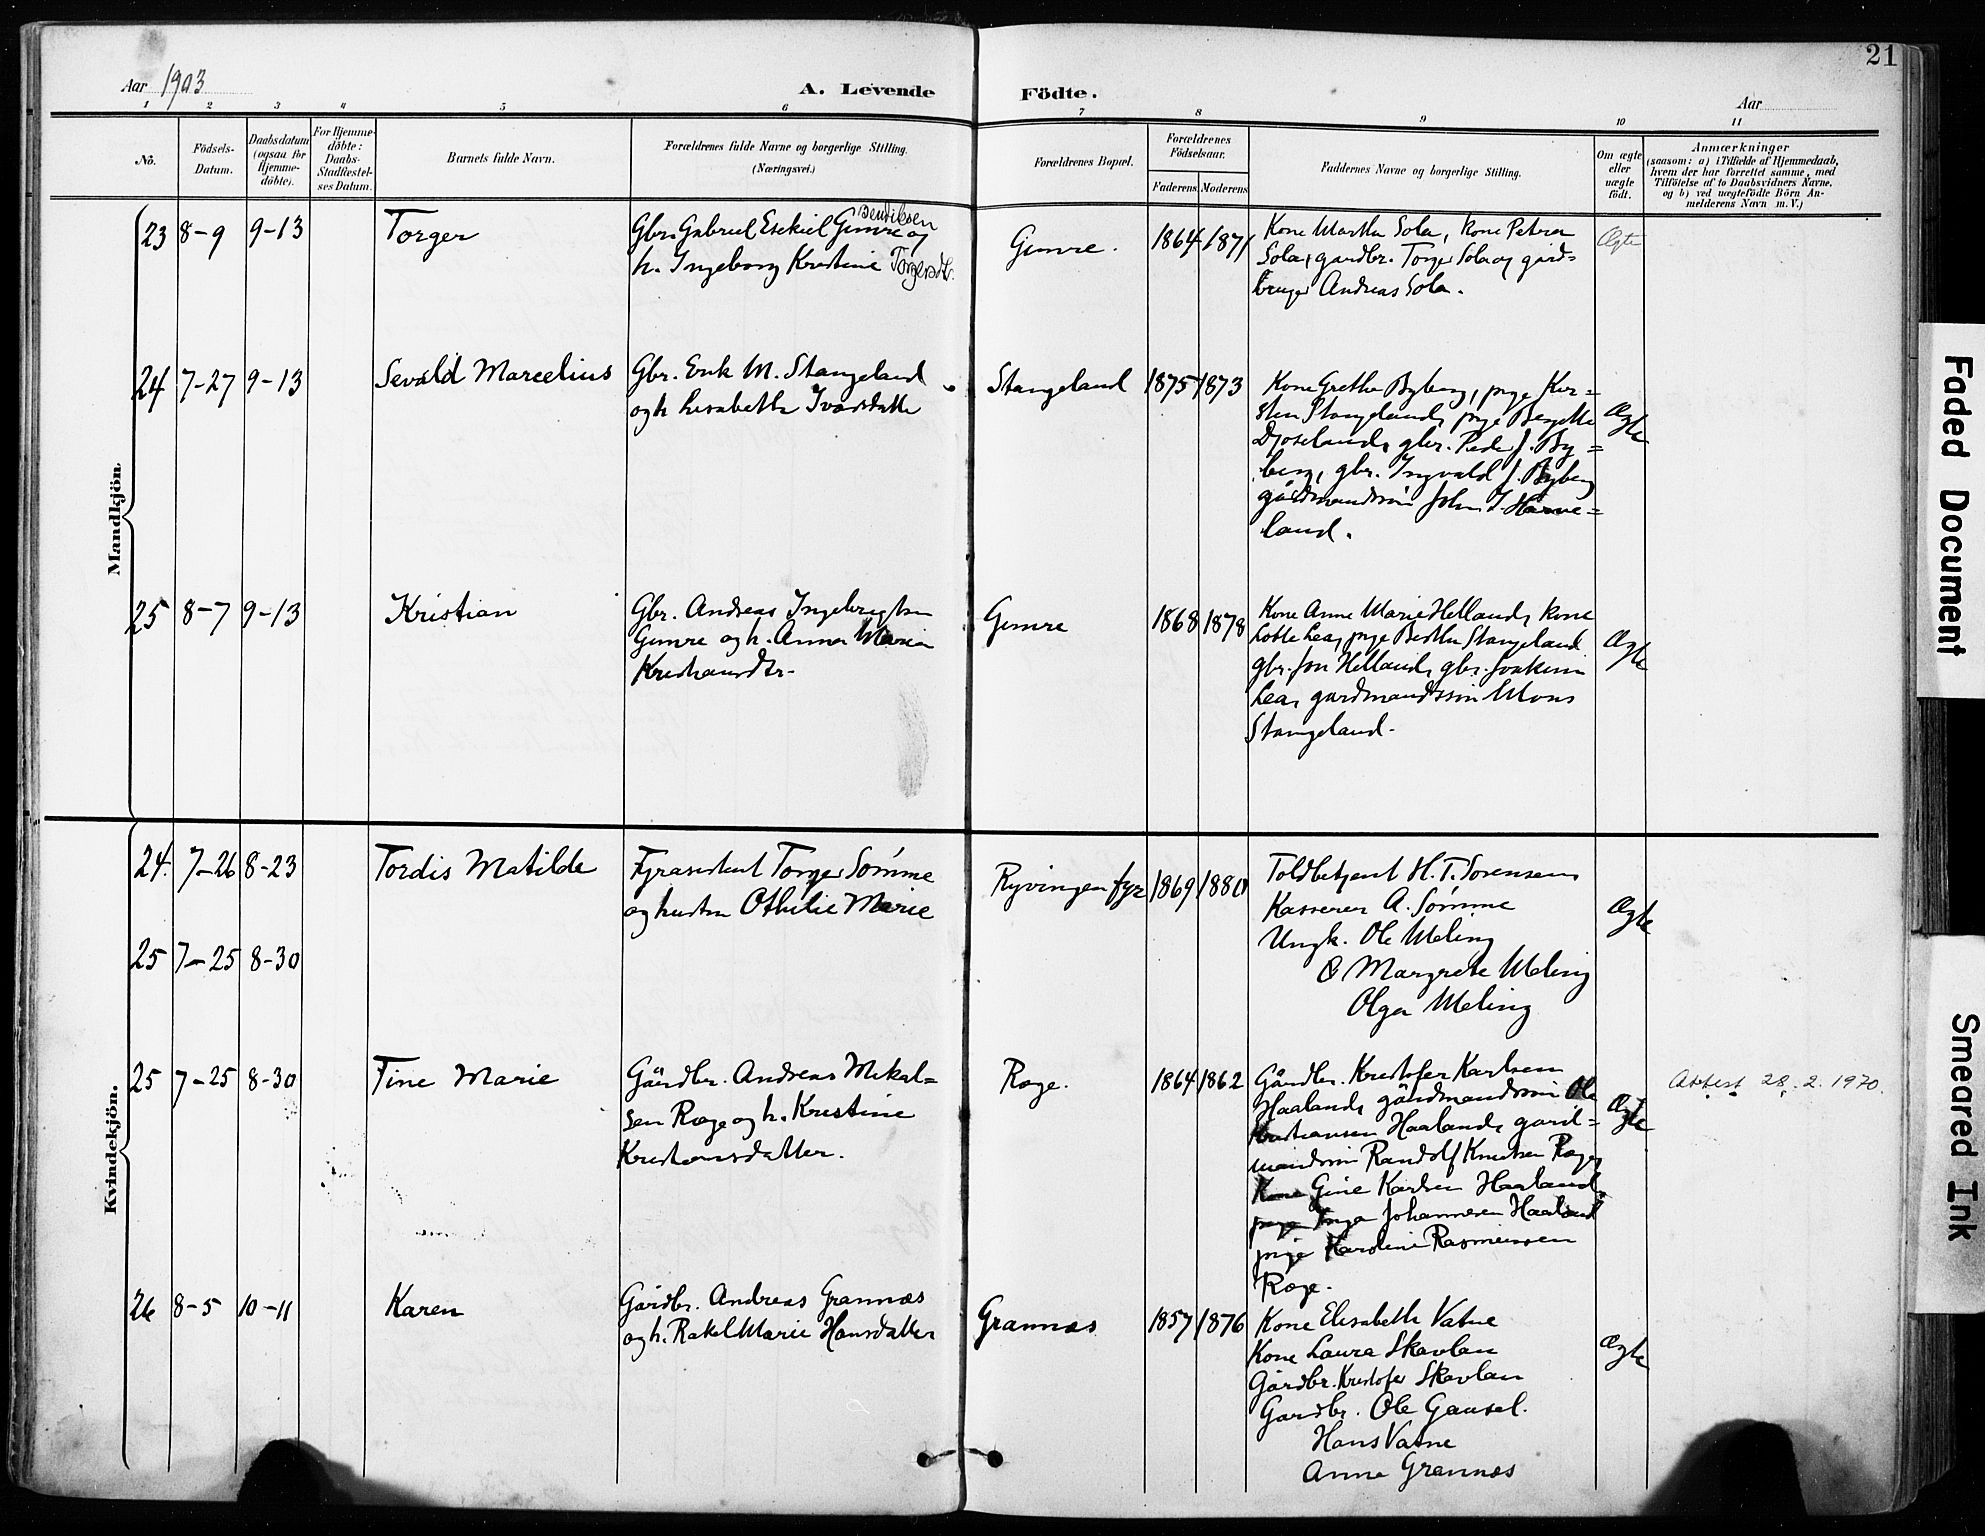 21
Aar 1903
A. Levende Födte.
Aar
1 2 3 4 5 6 7 8 9 10 11
No.
Födsels-
Datum.
Daabsdatum
(ogsaa for
Hjemme-
döbte).
For Hjemme-
döbte:
Daabs-
Stadfæstel-
ses Datum.
Barnets fulde Navn.
Forældrenes fulde Navne og borgerlige Stilling.
(Næringsvei.)
Forældrenes Bopæl.
Forældrenes
Födselsaar.
Faderens Moderens
Faddernes Navne og borgerlige Stilling.
Om ægte
eller
uægte
født.
Anmærkninger
(saasom: a) i Tilfælde af Hjemmedaab,
hvem der har forrettet samme, med
Tilföielse af to Daabsvidners Navne,
og b) ved uægtefödte Börn An-
melderens Navn m. V.)
Mandkjön.
23 8-9 9-13
Torger
Bendiksen
Gbr. Gabriel Esekiel Gimre og
h. Ingeborg Kristine Torgersdtr.
Gimre.
1864 1871
Kone Martha Sola, kone Petrea
Sola, gardbr. Torger Sola og gård=
bruger Andreas Sola.
Ægte
24 7-27 9-13
Sevald Marcelius
Gbr. Erik M. Stangeland
og h Lisabeth Ivarsdatte
Stangeland
1875 1873
Kone Grethe Byberg, pige Ker=
sten Stangeland, pige Bergitte
Djoseland, gbr. Peder J. By=
berg, gbr. Ingvald J. Byberg
gårdmandssøn John I. Harve=
land.
Ægte
25 8-7 9-13
Kristian
Gbr. Andreas Ingebrigtsen
Gimre og h. Anna Maria
Kristiansdtr.
Gimre
1868 1878
Kone Anne Marie Helland, kone
Lotte Lea, pige Bertha Stangeland
gbr. Jon Helland, gbr. Joakim
Lea, gardmandssøn Mons
Stangeland.
Ægte
Kvindekjön.
24. 7-26 8-23
Tordis Matilde
Fyrasistent Torger Sømme
og hustru Othilie Marie
Ryvingen fyr
1869 1880
Toldbetjent H. T. Sorensen
Kasserer A. Sømme
Ungk. Ole Meling
Margrete Meling
Olga Meling
Ægte
25 7-25 8-30
25 7-25 8-30
Tine Marie
Gårdbr. Andreas Mikal=
sen Ræge og h. Kristine
Kristensdatter.
Ræge.
1864 1862
Gårdbr. Kristofer Karlsen
Haaland, gårdmandssøn Ole
Kristiansen Haaland, gard=
mandssøn Randolf Knutsen Ræge,
Kone Gine Karlsen Haaland,
pige Inga Johannesen Haaland
pige Karoline Rasmussen
Ræge.
Ægte
Attest 28. 2. 1970.
26 8-5 10-11
Karen
Gårdbr. Andreas Grannæs
og h. Rakel Marie Hansdatter
Grannæs
1857 1876
Kone Elisabeth Vatne
Kone Laura Skavlan
Gårdbr. Kristofer Skavlan
Gardbr. Ole Gausel.
Hans Vatne
Anna Grannæs
Ægte
Faded Document
Smeared Ink